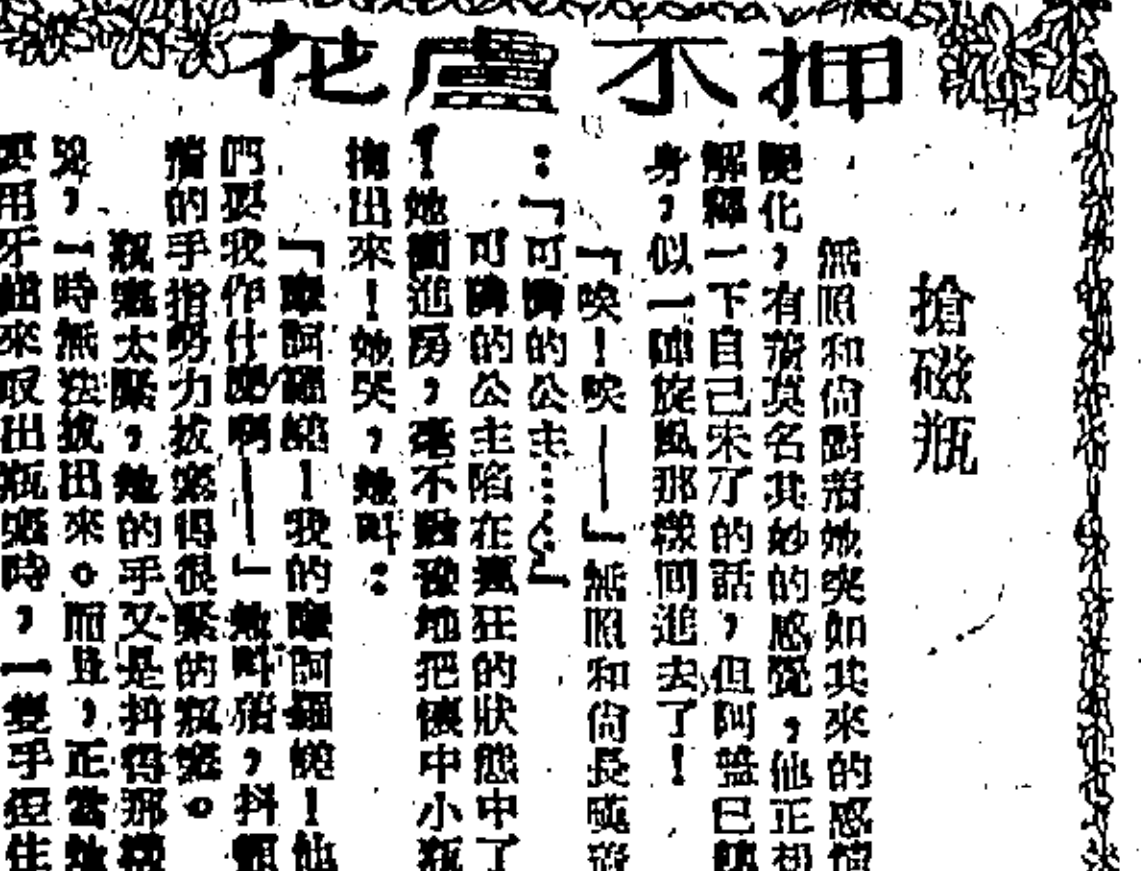 押不盧花
搶磁瓶
無照和尚對着她突如其來的感情
變化，有着莫名其妙的感覺，他正想
解釋一下自己未了的話，但阿蓋已轉
身，似一陣旋風那樣囘進去了！
「唉！唉——」無照和尚長嘆着
：「可憐的公主……」
可憐的公主陷在瘋狂的狀態中了
！她衝進房，毫不猶豫地把懷中小瓶
掏出來！她哭，她叫：
「摩訶羅嵯！我的摩訶羅嵯！他
們要我作什麼啊——」她叫着，抖顫
着的手指努力拔塞得很緊的瓶塞。
瓶塞太緊，她的手又是抖得那樣
兇，一時無法拔出來。而且，正當她
要用牙齒來取出瓶塞時，一雙手捏住